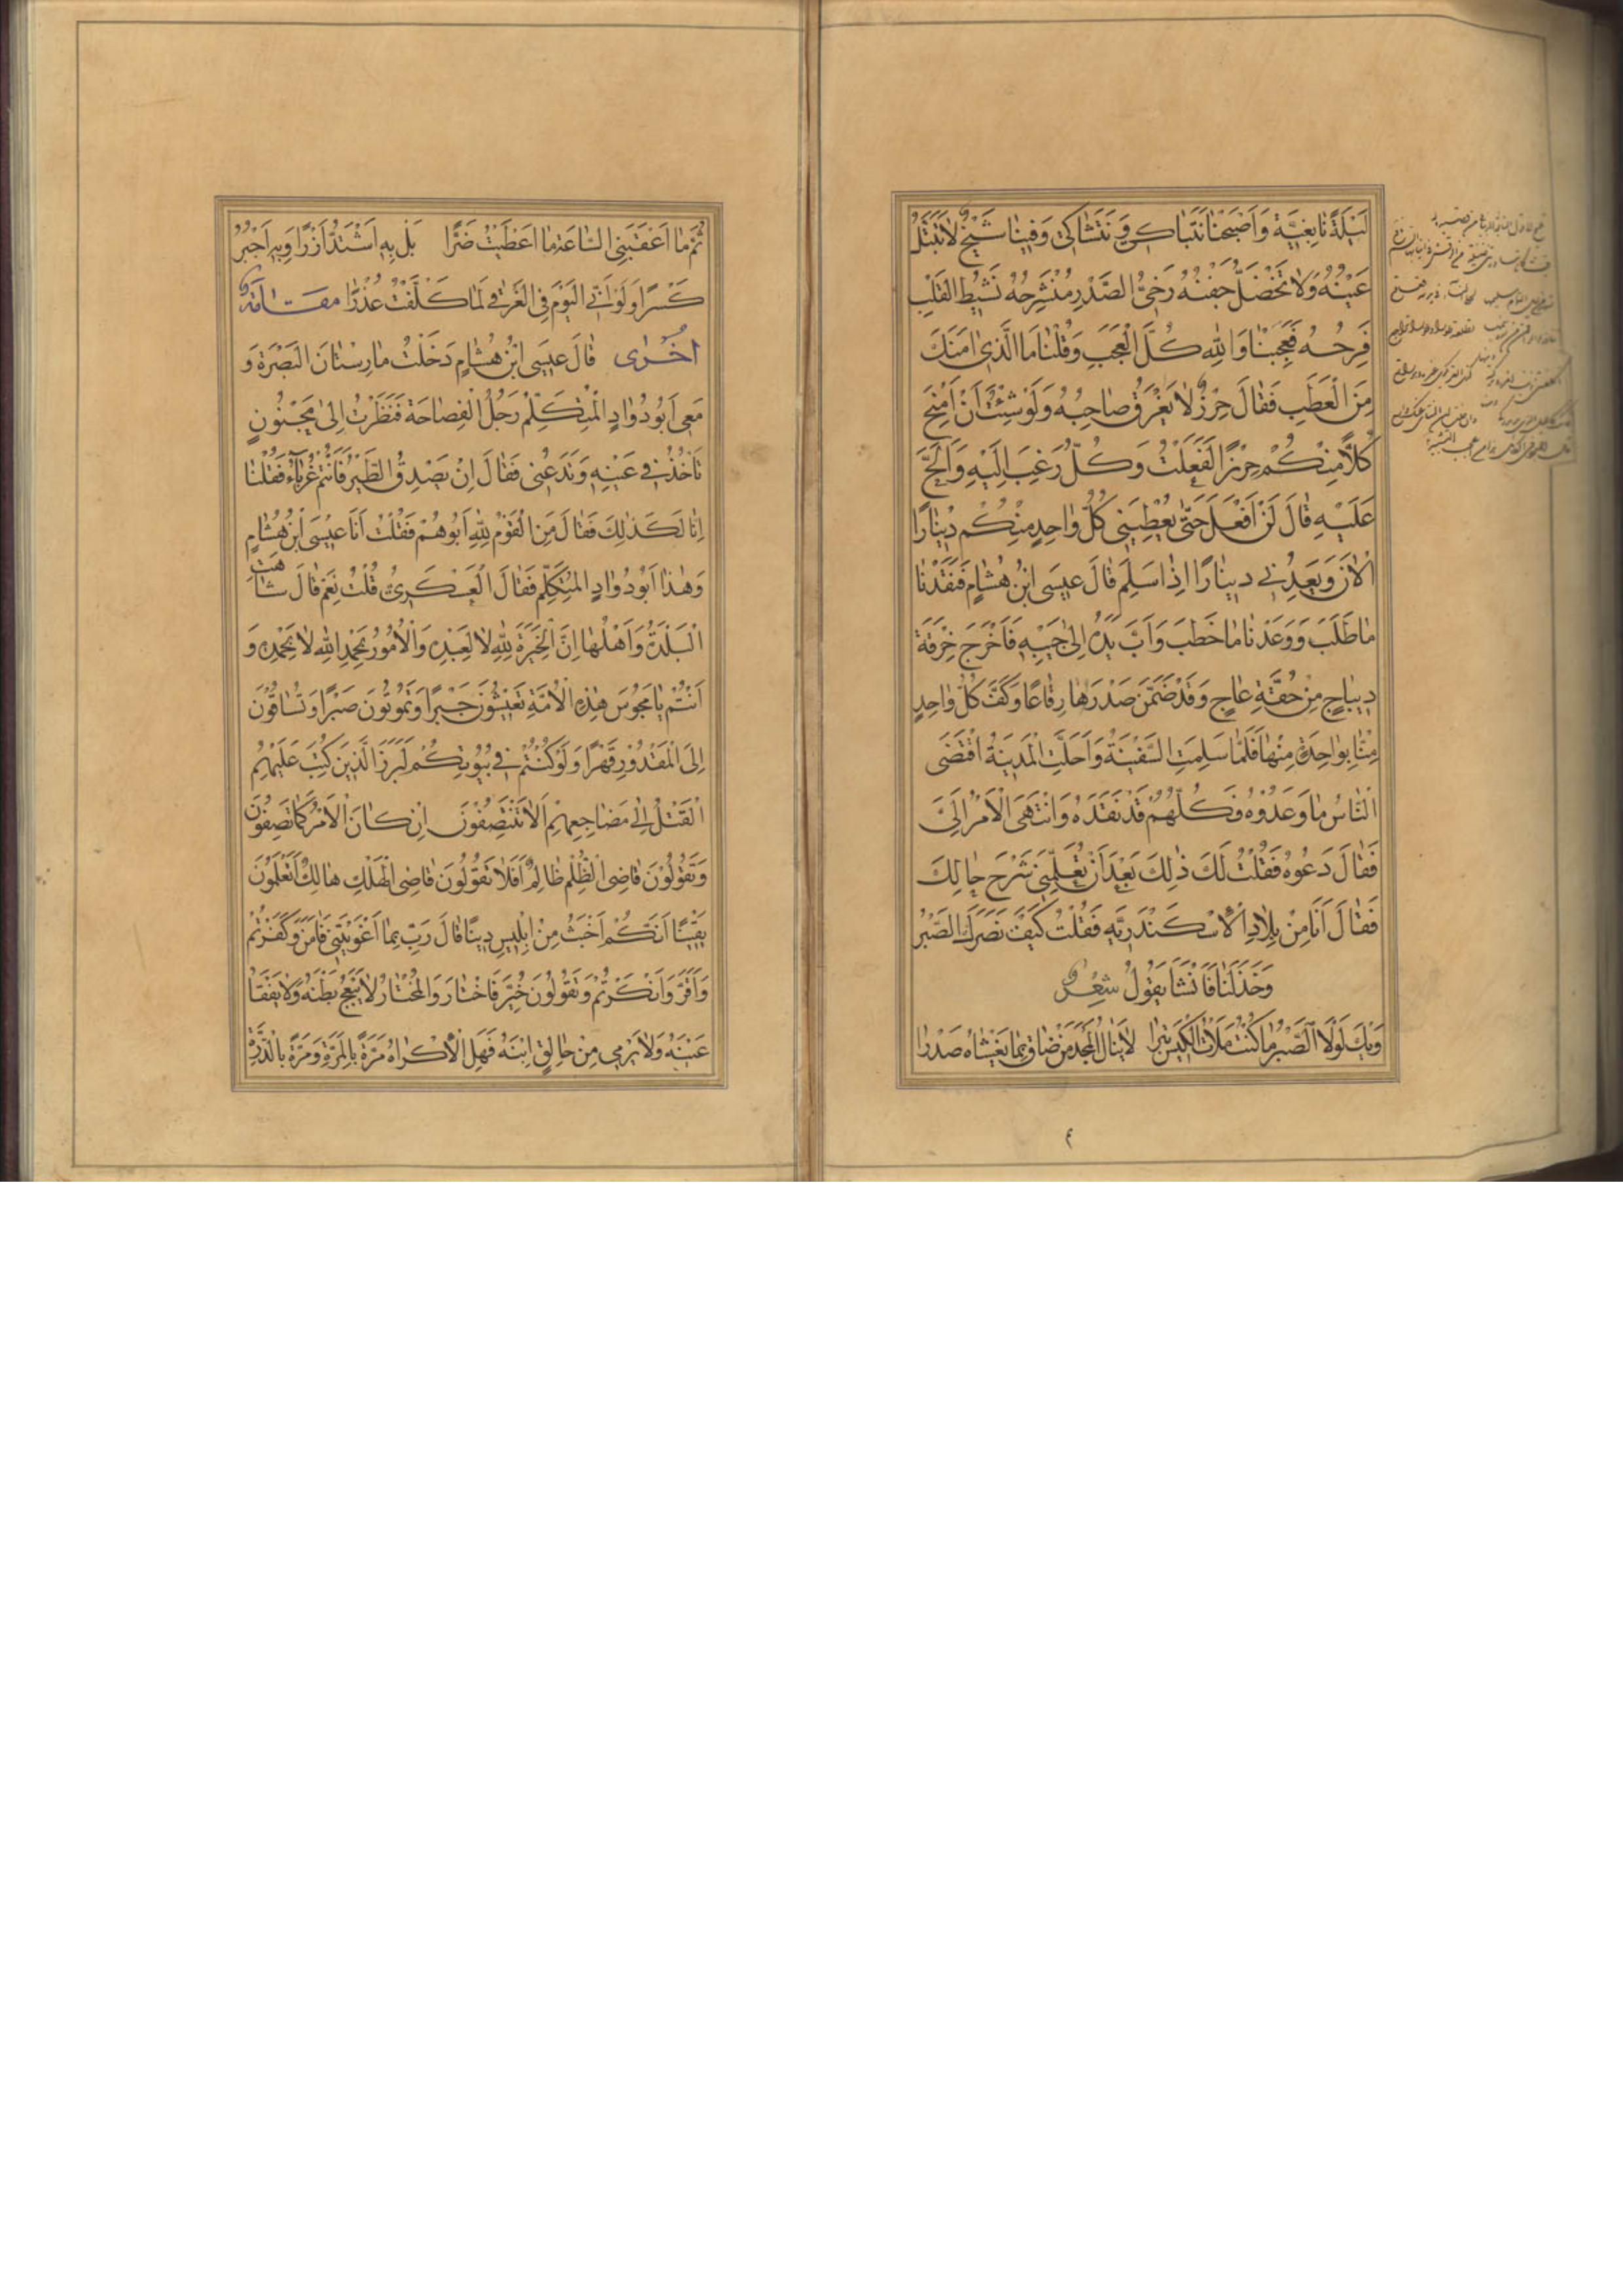 لَيْلَةً نَابِغِيَّةً وَاَصْبَحْنَا نَتَبَاكَى وَنَتَشَاكَى وَفِينَا شَيْخٌ لَا تَبْتَلُّ
عَيْنُهُ وَلَا تَخْضَلُّ جَفْنُهُ رَخِىُّ الصَّدْرِ مُنْشَرِحُهُ نَشِيطُ الْقَلْبِ
فَرِحُهُ فَعَجِبْنَا وَاللهِ كُلَّ الْعَجَبِ وَقُلْنَا مَا الَّذِى اٰمَنَكَ
مِنَ الْعَطَبِ فَقَالَ حِرْزٌ لَا يَغْرَقُ صَاحِبُهُ وَلَوْ شِئْتُ اَنْ اَمْنَحَ
كُلاًّ مِنْكُمْ حِرْزًا لَفَعَلْتُ وَكُلٌّ رَغِبَ اِلَيْهِ وَاَلَحَّ
عَلَيْهِ قَالَ لَنْ اَفْعَلَ حَتّٰى يُعْطِيَنِى كُلُّ وَاحِدٍ مِنْكُمْ دِينَارًا
الْاٰنَ وَيَعِدُنِى دِينَارًا اِذَا سَلِمَ قَالَ عِيسَى ابْنُ هُشَامٍ فَنَقَدْنَا
مَا طَلَبَ وَوَعَدْنَا مَا خَطَبَ وَاٰبَ يَدُهُ اِلٰى جَيْبِهِ فَاَخْرَجَ خِرْقَةَ
دِيبَاجٍ مِنْ حُقَّةِ عَاجٍ وَقَدْ ضَمَّنَ صَدْرَهَا رِقَاعًا وَكَفَّ كُلَّ وَاحِدٍ
مِنَّا بِوَاحِدَةٍ مِنْهَا فَلَمَّا سَلِمَتِ السَّفِينَةُ وَاَحَلَّتِ الْمَدِينَةَ اقْتَضَى
النَّاسُ مَا وَعَدُوْهُ فَكُلُّهُمْ قَدْ نَقَدَهُ وَانْتَهَى الْاَمْرُ اِلَىَّ
فَقَالَ دَعُوهُ فَقُلْتُ لَكَ ذٰلِكَ بَعْدَ اَنْ تُعَلِّمَنِى شَرْحَ حَالِكَ
فَقَالَ اَنَا مِنْ بِلَادِ الْاِسْكَنْدَرِيَّهِ فَقُلْتُ كَيْفَ نَصَرَكَ الصَّبْرُ
وَخَذَلَنَا فَاَنْشَاَ يَقُولُ شِعْرٌ
وَيْكَ لَوْلَا الصَّبْرُ مَا كُنْتُ مَلَأْتُ الْكِيسَ تِبْرًا لَا يَنَالُ الْمَجْدَ مَنْ ضَاقَ بِمَا يَغْشَاهُ صَدْرًا
٤
ثُمَّ مَا اَعْقَبَنِى السَّاعَةَ مَا اُعْطِيْتُ ضَرًّا بَلْ بِهِ اَشْتَدُّ اَزْرًا وَبِهِ اَجْبُرُ
كَسْرًا وَلَوْ اَنِّى الْيَوْمَ فِى الْغَرْقٰى لَمَا كَلَّفْتُ عُذْرًا مَقَامَةٌ
اُخْرٰى قَالَ عِيسَى ابْنُ هُشَامٍ دَخَلْتُ مَارِسْتَانَ الْبَصْرَةِ وَ
مَعِى اَبُو دُوَادٍ الْمُتِكَلِّمُ رَجُلُ الْفِصَاحَةِ فَنَظَرْتُ اِلٰى مَجْنُونٍ
تَأْخُذُنِى عَيْنِهِ وَتَدَعُنِى فَقَالَ اِنْ يَصْدِقُ الطَّيْرُ فَاَنْتُمْ غُرَبَآءُ فَقُلْنَا
اِنَّا لَكَذٰلِكَ فَقَالَ مَنِ الْقَوْمُ لِلّٰهِ اَبُوهُمْ فَقُلْتُ اَنَا عِيْسَى ابْنُ هُشَامٍ
وَهٰذَا اَبُو دُوَادٍ الْمُتِكَلِّمُ فَقَالَ الْعَسْكَرِىُّ قُلْتُ نَعَمْ قَالَ شَاهَتِ
الْبَلْدَةُ وَاَهْلُهَا اِنَّ الْخِيَرَةَ لِلّٰهِ لَا لِعَبْدِهِ وَالْاُمُورُ بِحَمْدِ اللهِ لَا بِحَمْدِهِ وَ
اَنْتُمْ يَا مَجُوسَ هٰذِهِ الْاُمَّةِ تَعِيْشُوْنَ جَبْرًا وَتَمُوتُونَ صَبْرًا وَتُسَاقُوْنَ
اِلَى الْمَقْدُوْرِ قَهْرًا وَلَوْ كُنْتُمْ فِى بُيُوتِكُمْ لَبَرَزَ الَّذِينَ كُتِبَ عَلَيْهِمُ
الْقَتْلُ اِلٰى مَضَاجِعِهِمْ اَلَا تَنْتَصِفُوْنَ اِنْ كَانَ الْاَمْرُ كَمَا تَصِفُوْنَ
وَتَقُوْلُوْنَ قَاضِى الظُّلْمِ ظَالِمٌ اَفَلَا تَقُوْلُونَ قَاضِى الْهُلْكِ هَالِكٌ اَتَعْلَمُوْنَ
يَقِيْنًا اَنَّكُمْ اَخْبَثُ مِنْ اِبْلِيسِ دِينًا قَالَ رَبِّ بِمَا اَغْوَيْتَنِى فَاٰمَنَ وَكَفَرْتُمْ
وَاَقَرَّ وَاَنْكَرْتُمْ وَتَقُوْلُونَ خُيِّرَ فَاخْتَارَ وَالْمُخْتَارُ لَا يَبْعَجُ بَطْنَهُ وَلَا يَفْقَأُ
عَيْنَهُ وَلَا يَرْمِى مِنْ حَالِقٍ ابْنَهُ فَهَلِ الْاِكْرَاهُ مَرَّةً بِالْمَرَّةِ وَمَرَّةً بِالدِّرَّةِ